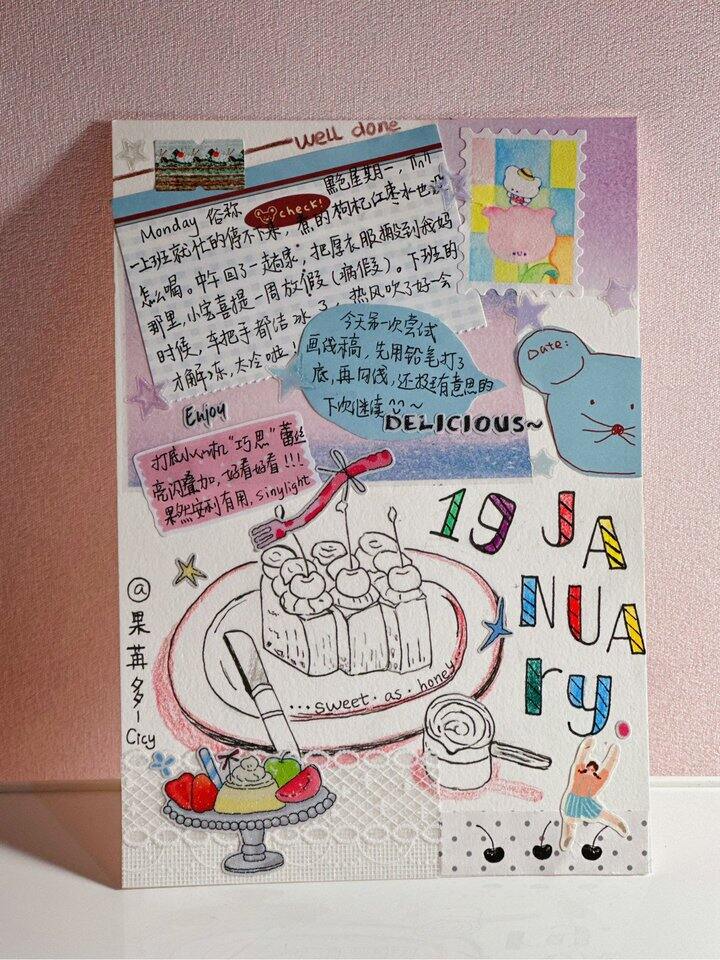 well done
Monday 俗称 check! 黑色星期一,
一上班就忙的停不下来, 煮的枸杞红枣水也没
怎么喝。中午回了一趟家, 把厚衣服搬到我妈
那里, 小宝喜提一周放假(病假)。下班的
时候, 车把手都洁冰了, 热风吹了好一会
才解冻, 太冷啦!
今天第一次尝试
画线稿, 先用铅笔打了
底, 再勾线, 还挺有意思的
下次继续 ~
Date:
Enjoy
DELICIOUS~
打底小心机“巧思”蕾丝
亮闪叠加, 好看好看!!!
果然安利有用, sinylight
19 JA
NUA
ry.
@果苒多-Cicy
...sweet · as · honey